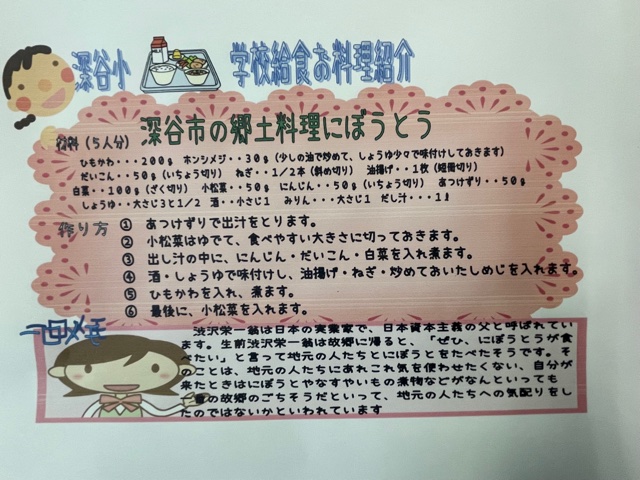 深谷小 学校給食お料理紹介
材料（５人分） 深谷市の郷土料理にぼうとう
ひもかわ・・・２００ｇ ホンシメジ・・３０ｇ（少しの油で炒めて、しょうゆ少々で味付けしておきます）
だいこん・・５０ｇ（いちょう切り） ねぎ・・１／２本（斜め切り） 油揚げ・・１枚（短冊切り）
白菜・・１００ｇ（ざく切り） 小松菜・・５０ｇ にんじん・・５０ｇ（いちょう切り） あつけずり・・５０ｇ
しょうゆ・・大さじ３と１／２ 酒・・小さじ１ みりん・・・大さじ１ だし汁・・・１ℓ
作り方 ① あつけずりで出汁をとります。
② 小松菜はゆでて、食べやすい大きさに切っておきます。
③ 出し汁の中に、にんじん・だいこん・白菜を入れ煮ます。
④ 酒・しょうゆで味付けし、油揚げ・ねぎ・炒めておいたしめじを入れます。
⑤ ひもかわを入れ、煮ます。
⑥ 最後に、小松菜を入れます。
一口メモ
渋沢栄一翁は日本の実業家で、日本資本主義の父と呼ばれてい
ます。生前渋沢栄一翁は故郷に帰ると、「ぜひ、にぼうとうが食
べたい」と言って地元の人たちとにぼうとをたべたそうです。そ
のことは、地元の人たちにあれこれ気を使わせたくない、自分が
来たときはにぼうとやなすやいもの煮物などがなんといっても
の故郷のごちそうだといって、地元の人たちへの気配りをし
たのではないかといわれています